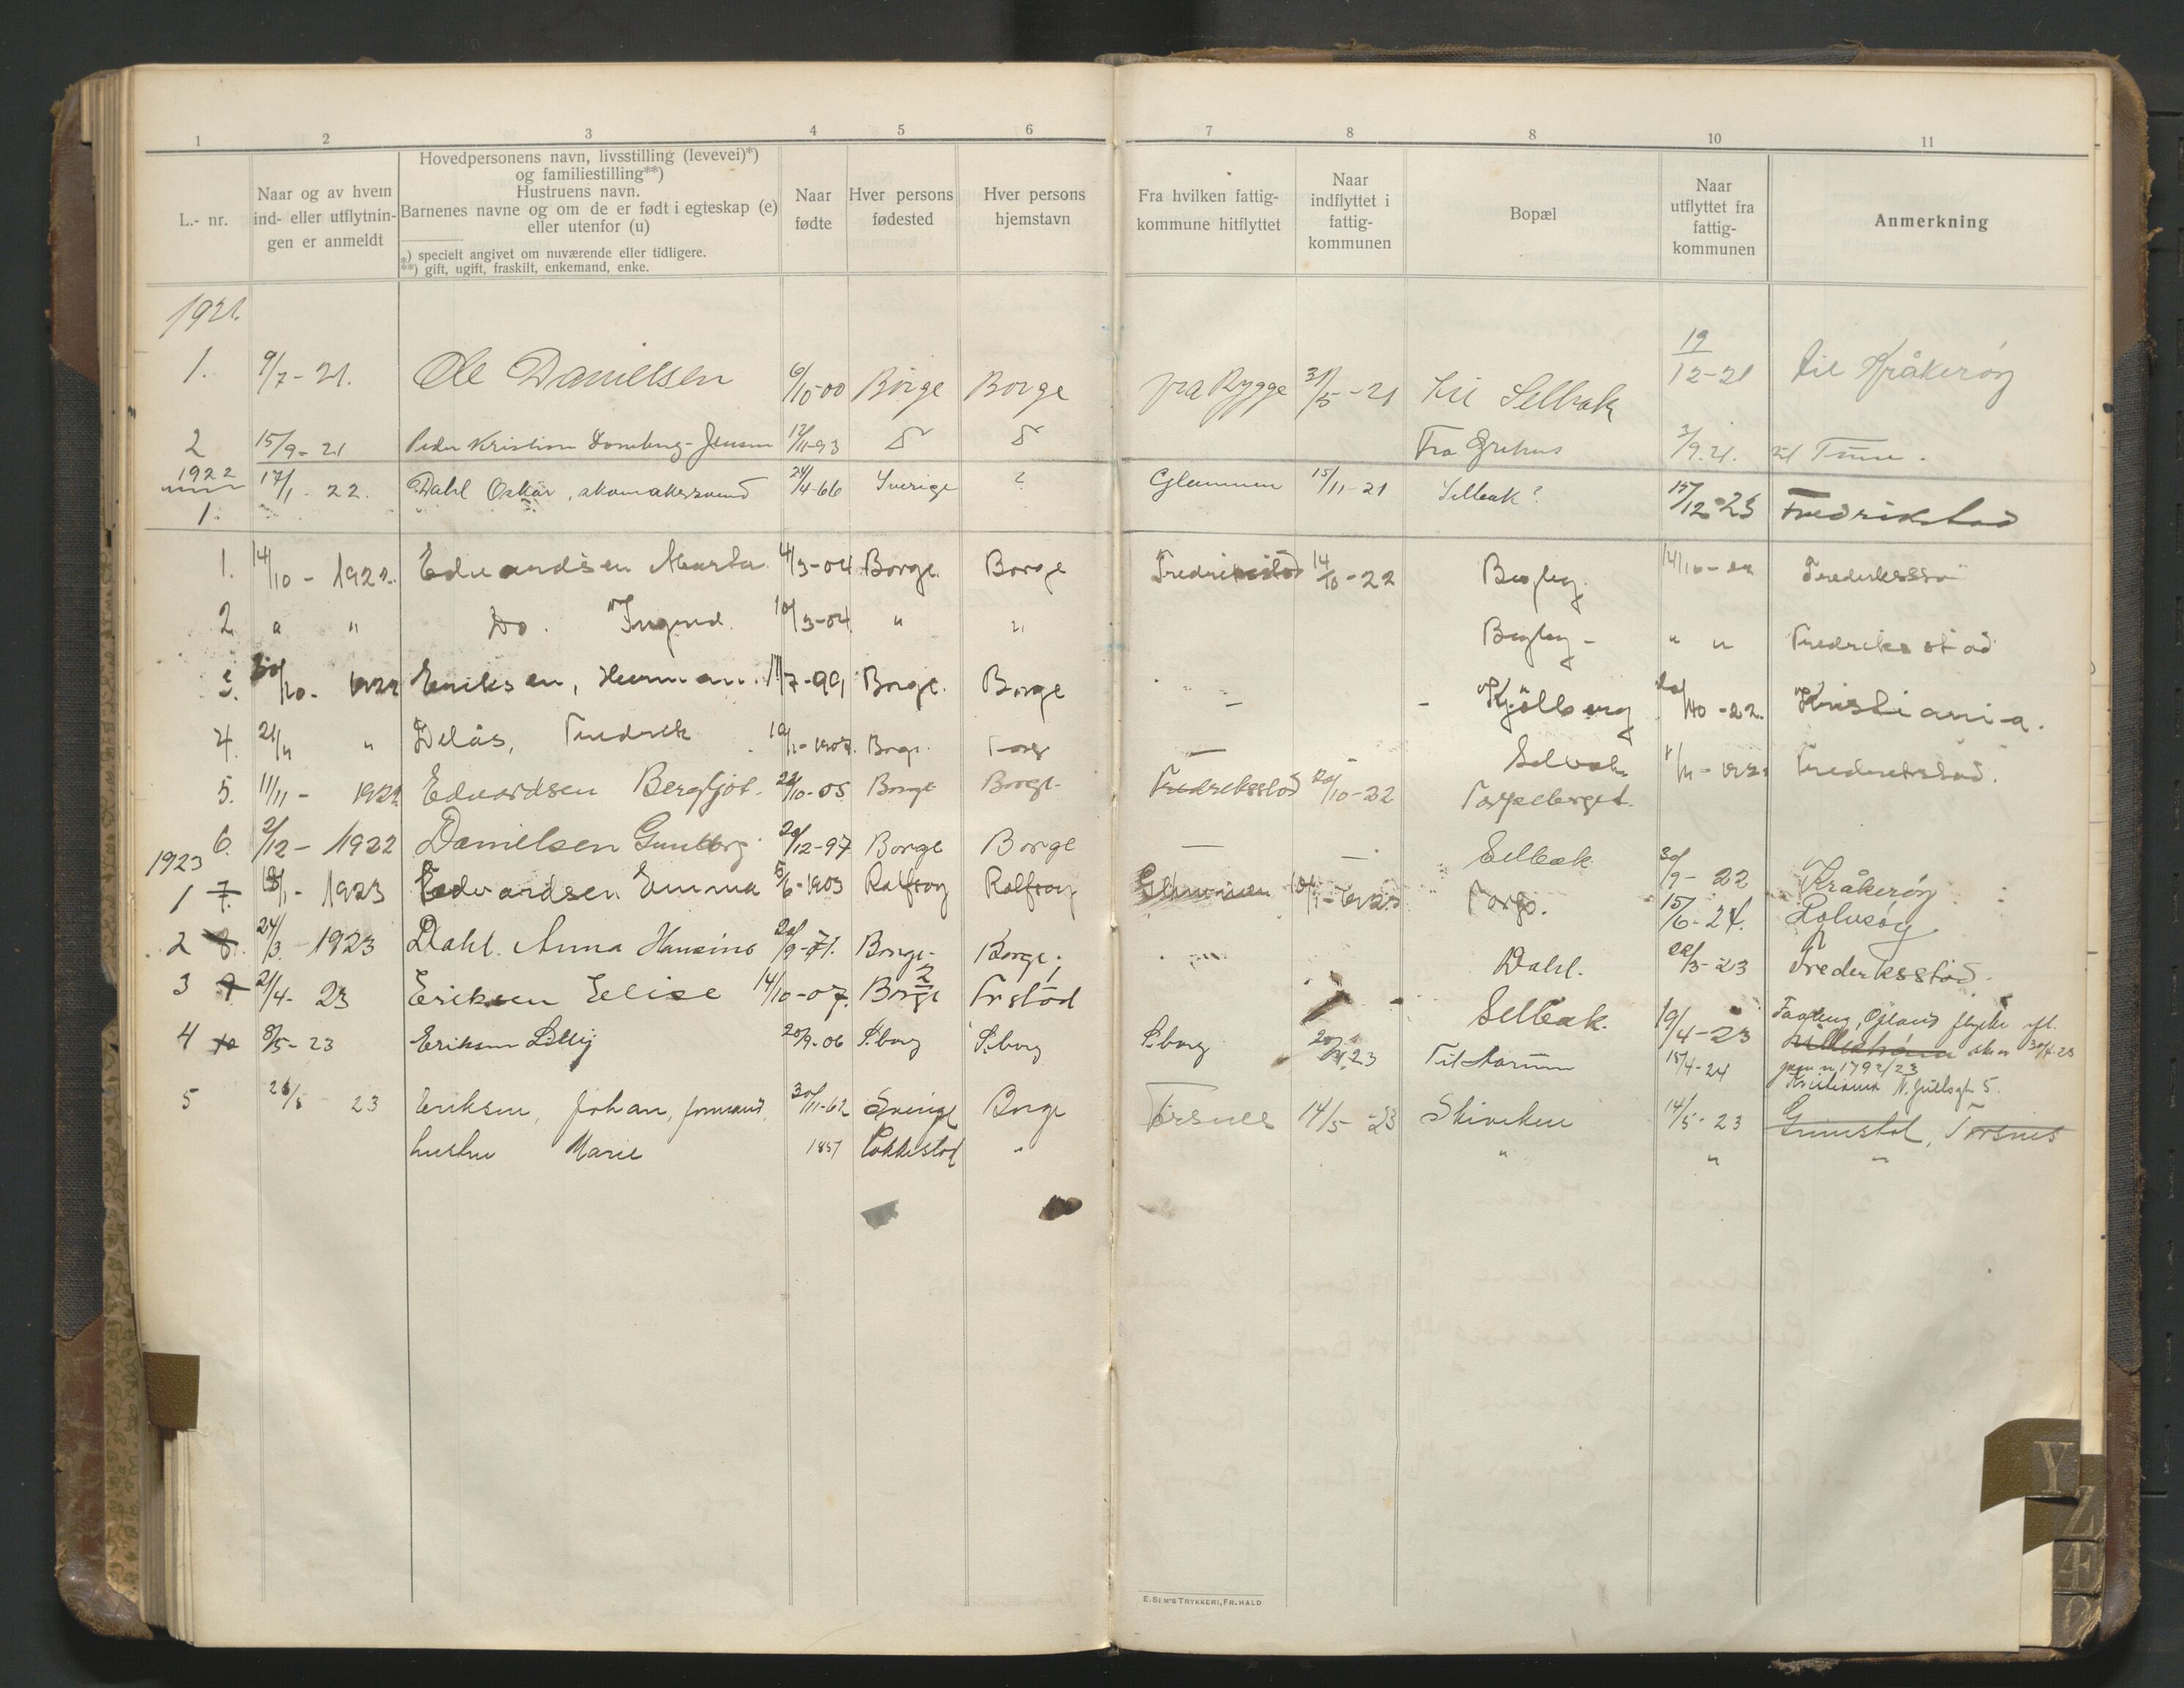 1 2 3 4 5 6 7 8 8 10 11
L.- nr.
Naar og av hvem ind- eller utflytnin- gen er anmeldt
Hovedpersonens navn, livsstilling (levevei)*)
og familiestilling**)
Hustruens navn.
Barnenes navne og om de er født i egteskap (e)
eller utenfor (u)
*) specielt angivet om nuværende eller tidligere.
**) gift, ugift, fraskilt, enkemand, enke.
Naar fødte
Hver persons fødested
Hver persons hjemstavn
Fra hvilken fattig- kommune hitflyttet
Naar indflyttet i fattig- kommunen
Bopæl
Naar utflyttet fra fattig- kommunen
Anmerkning
1921.
1. 9/7-21. Ole Danielsen 6/10-00 Borge Borge fra Rygge 31/5-21 til Selbak 19/12-21 til Kråkerøy
2 15/9-21 Peder Kristian Jensen 12/11-93 Fra 2/9.21. til Tune.
1922 17/1-22. Dahl Oskar, skomakersvend 24/4-66 Sverige ? Glemmen 15/11-21 Selbak? 15/12-23 Fredrikstad
1.
1. 14/10-1922. Edvardsen Marta 4/3-04 Borge. Borge Fredriksstad 14/10-22 Begby. 14/10-22 Fredriksstad
2 " " Do. Ingrid. 10/3-04 " " Begby- " " Fredriksstad
3. 20/10- 1922 Eriksen, Herman. 11/7-99 Borge. Borge - - Kjölberg 20/10-22. Kristiania.
4. 21/11 " Delås, Fredrik 10/1-1907. Borge. Borge — Selbak 1/11-1922 Fredrikstad.
5. 11/11- 1922 Edvardsen Bergljot. 22/10-05 Borge Borge- Fredriksstad 20/10-22 Torpeberget.
6. 2/12-1922 Danielsen Gunborg 20/12-97 Borge Borge — — Selbak 30/9-22 Kråkerøy
1923
1 7. 18/1-1923 Edvardsen Emma 5/6-1903 Rolfsøy Rolfsøy Glemmen Torp. 15/6-24. Rolvsøy
2 8. 24/3-1923 Dahl. Anna Hansine 20/9-71. Borge- Borge. Dahl. 22/3-23 Frederiksstad.
3 9 21/4-23 Eriksen Elise 14/10-07. Borge Fr stad Selbak. 19/4-23
4 10 8/5-23 Eriksen Lilly 20/9-06 S.borg S.borg S.borg 23 Til 15/4-24 1792/23
5 26/5 23 Eriksen, Johan, formand, 30/11-62 Sverige Borge Torsnes 14/5-23 Skiviken 14/5-23 Grimstad, Torsnes
hustru Marie 1857 " " " "
E. SEM'S TRYKKERI, FR.HALD
Y
Z
Æ
Ø